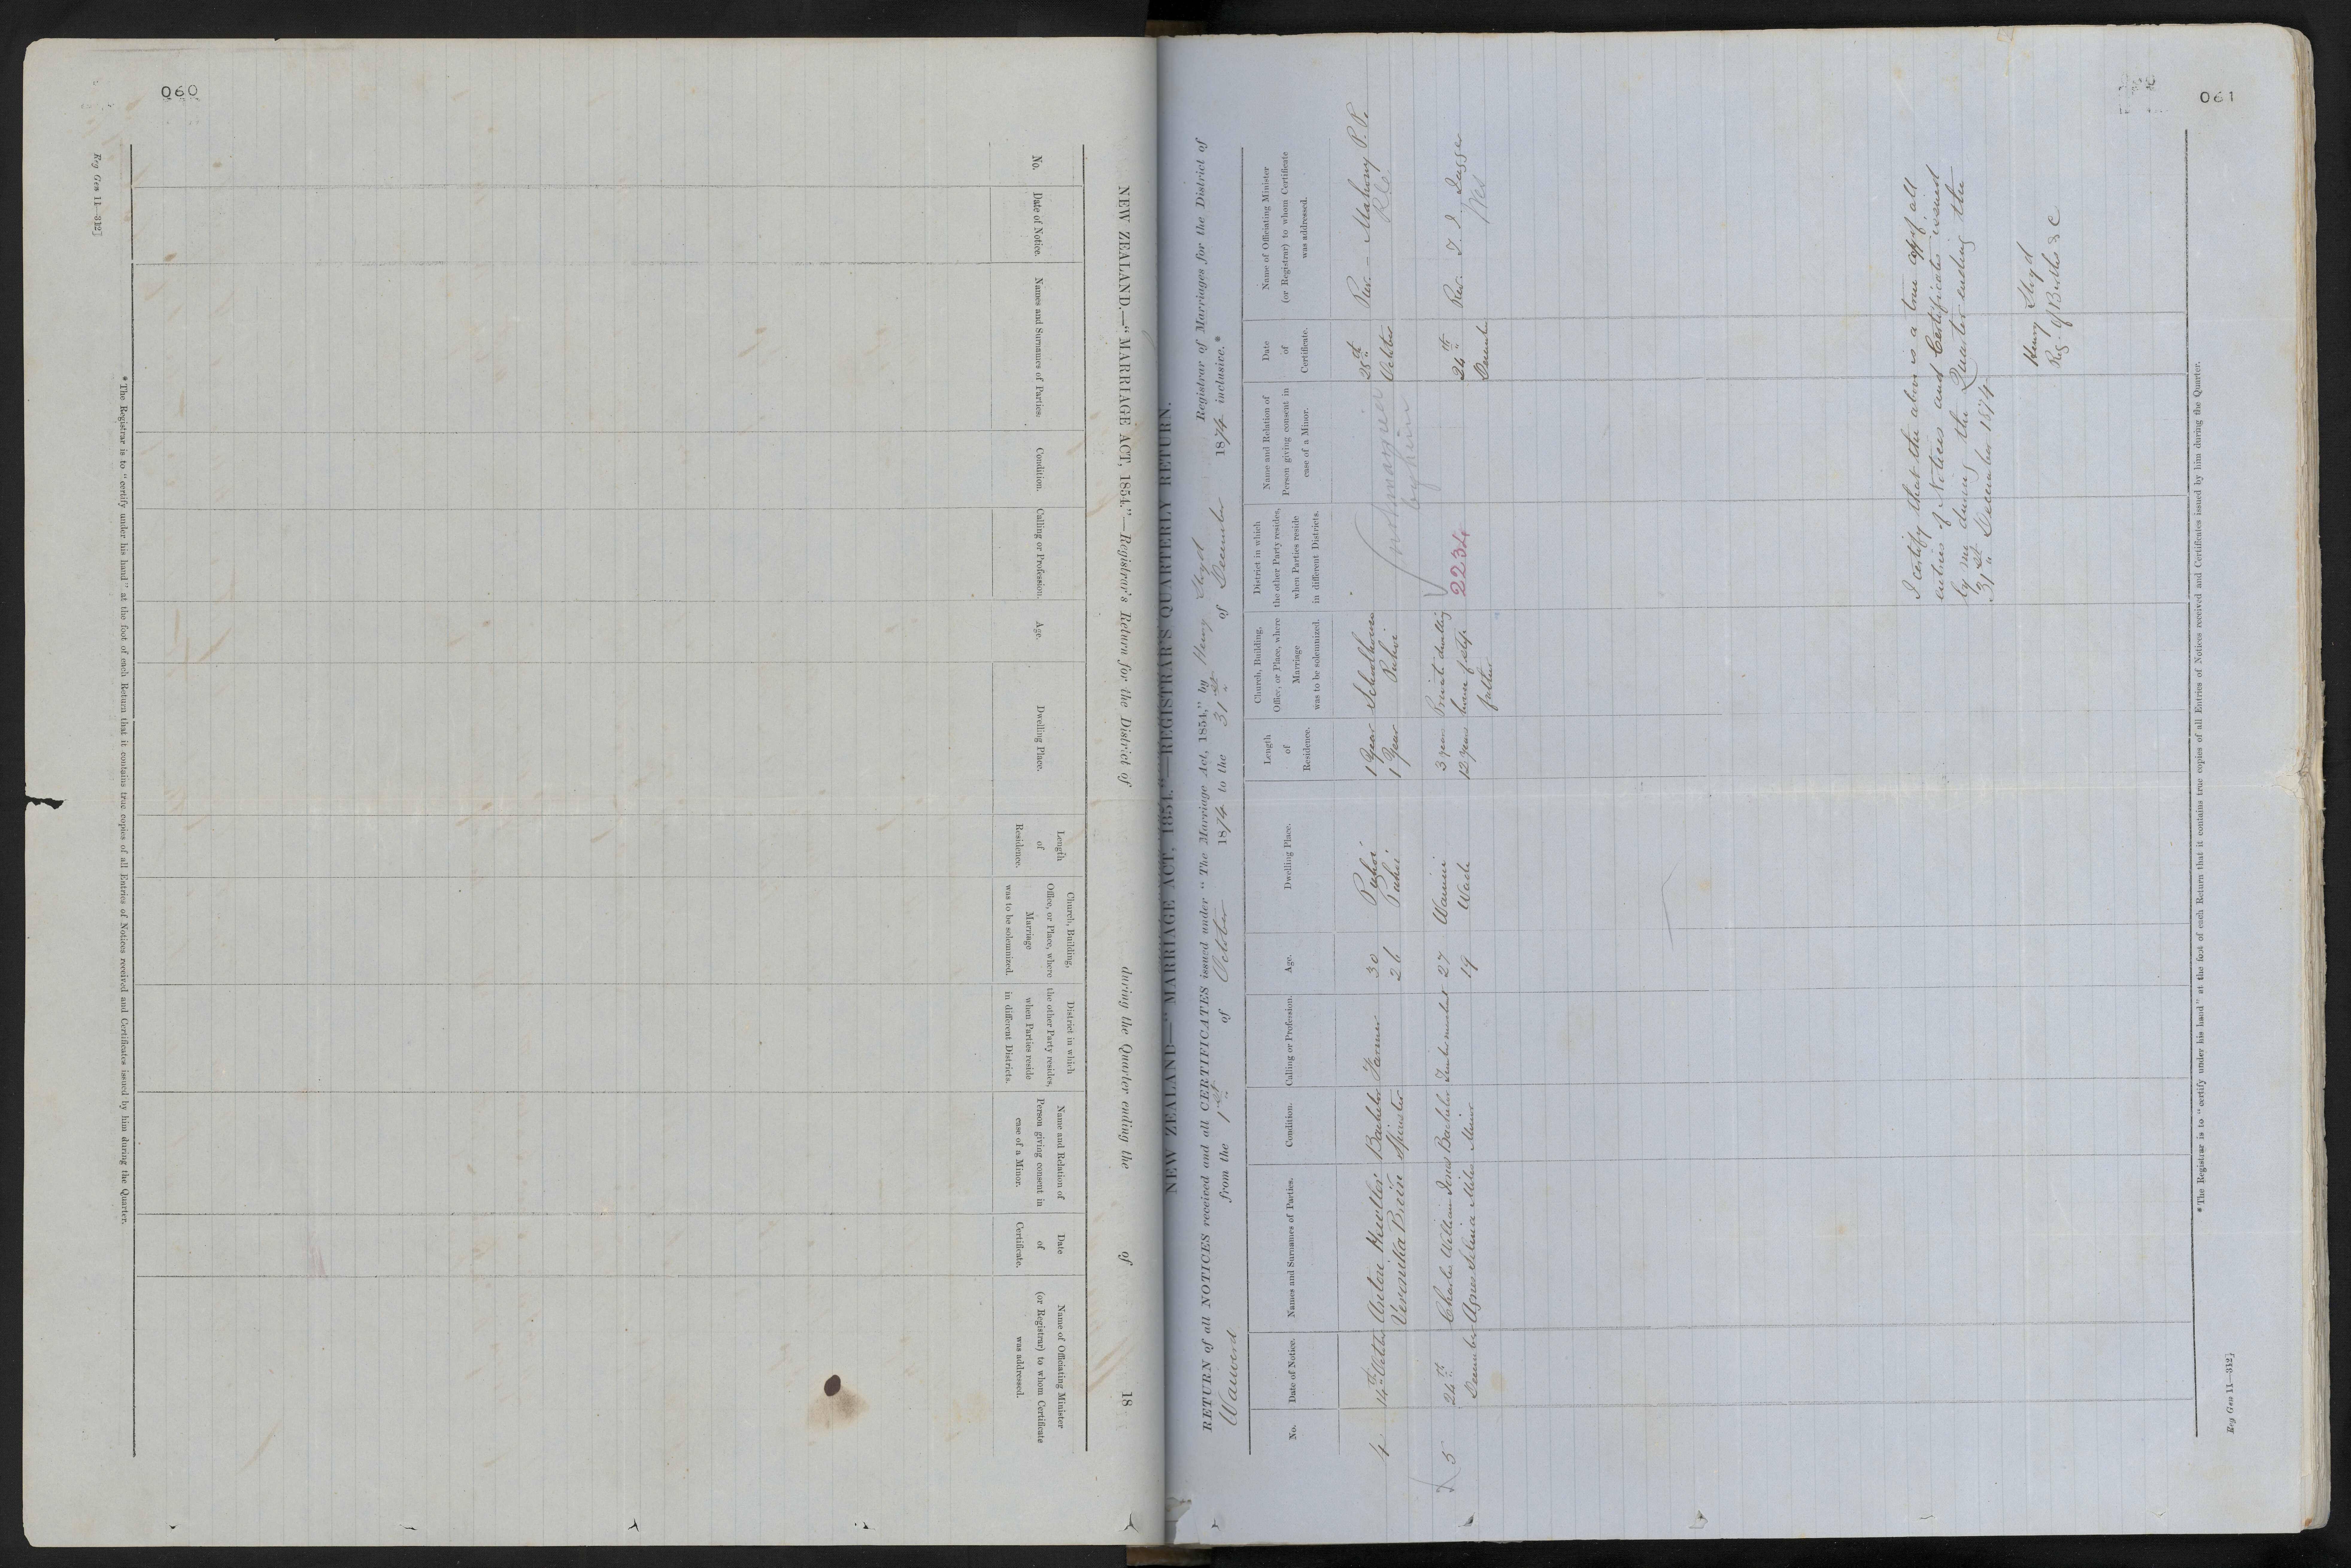 060
Reg Gen 11—312]
NEW ZEALAND.—"MARRIAGE ACT, 1854."—Registrar's Return for the District of during the Quarter ending the of 18
No.
Date of Notice.
Names and Surnames of Parties.
Condition.
Calling or Profession.
Age.
Dwelling Place.
Length
of
Residence.
Church, Building,
Office, or Place, where
Marriage
was to be solemnized.
District in which
the other Party resides,
when Parties reside
in different Districts.
Name and Relation of
Person giving consent in
case of a Minor.
Date
of
Certificate.
Name of Officiating Minister
(or Registrar) to whom Certificate
was addressed.
* The Registrar is to "certify under his hand" at the foot of each Return that it contains true copies of all Entries of Notices received and Certificates issued by him during the Quarter.
061
NEW ZEALAND—"MARRIAGE ACT, 1854."—REGISTRAR'S QUARTERLY RETURN.
RETURN of all NOTICES received and all CERTIFICATES issued under "The Marriage Act, 1854," by Henry Lloyd Registrar of Marriages for the District of
from the 1st of October 1874 to the 31st of December 1874 inclusive.*
No.
Date of Notice.
Names and Surnames of Parties.
Condition.
Calling or Profession.
Age.
Dwelling Place.
Length
of
Residence.
Church, Building,
Office, or Place, where
Marriage
was to be solemnized.
District in which
the other Party resides,
when Parties reside
in different Districts.
Name and Relation of
Person giving consent in
case of a Minor.
Date
of
Certificate.
Name of Officiating Minister
(or Registrar) to whom Certificate
was addressed.
4 14th Anton Bachelor Farmer 30 Puhoi 1 Year Schoolhouse 28th Rev. — Mahoney P.P.
Veronika Spinster 26 Puhoi 1 Year Puhoi October
not married
by him
5 24th Charles William Jones Bachelor 27 3 years Private dwelling 24th Rev.
December Agnes Selina Miles Minor 19 Wade 12 years house of
father December
2234
I certify that the above is a true copy of all
entries of Notices and Certificates issued
by me during the Quarter ending the
31st December 1874
Henry Lloyd
Reg. of Births &c
* The Registrar is to "certify under his hand" at the foot of each Return that it contains true copies of all Entries of Notices received and Certificates issued by him during the Quarter.
Reg Gen 11—312]